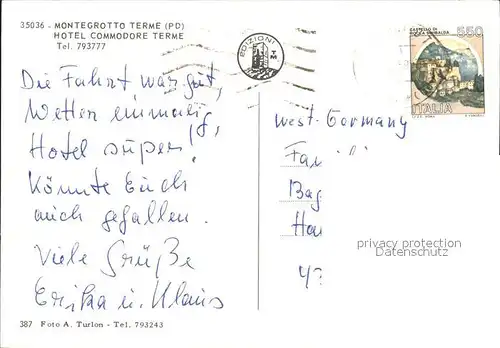 35036 - MONTEGROTTO TERME (PD)
HOTEL COMMODORE TERME
Tel. 793777
EDIZIONI
TM
CASTELLO DI
ROCCA SINIBALDA
550
ITALIA
Die Fahrt war gut,
Wetter einmalig,
Hotel super!
Könnte Euch
auch gefallen.
Viele Grüße
Erika u. Klaus
West-Germany
Fa
Bag
Ha
43
privacy protection
Datenschutz
387 Foto A. Turlon - Tel. 793243